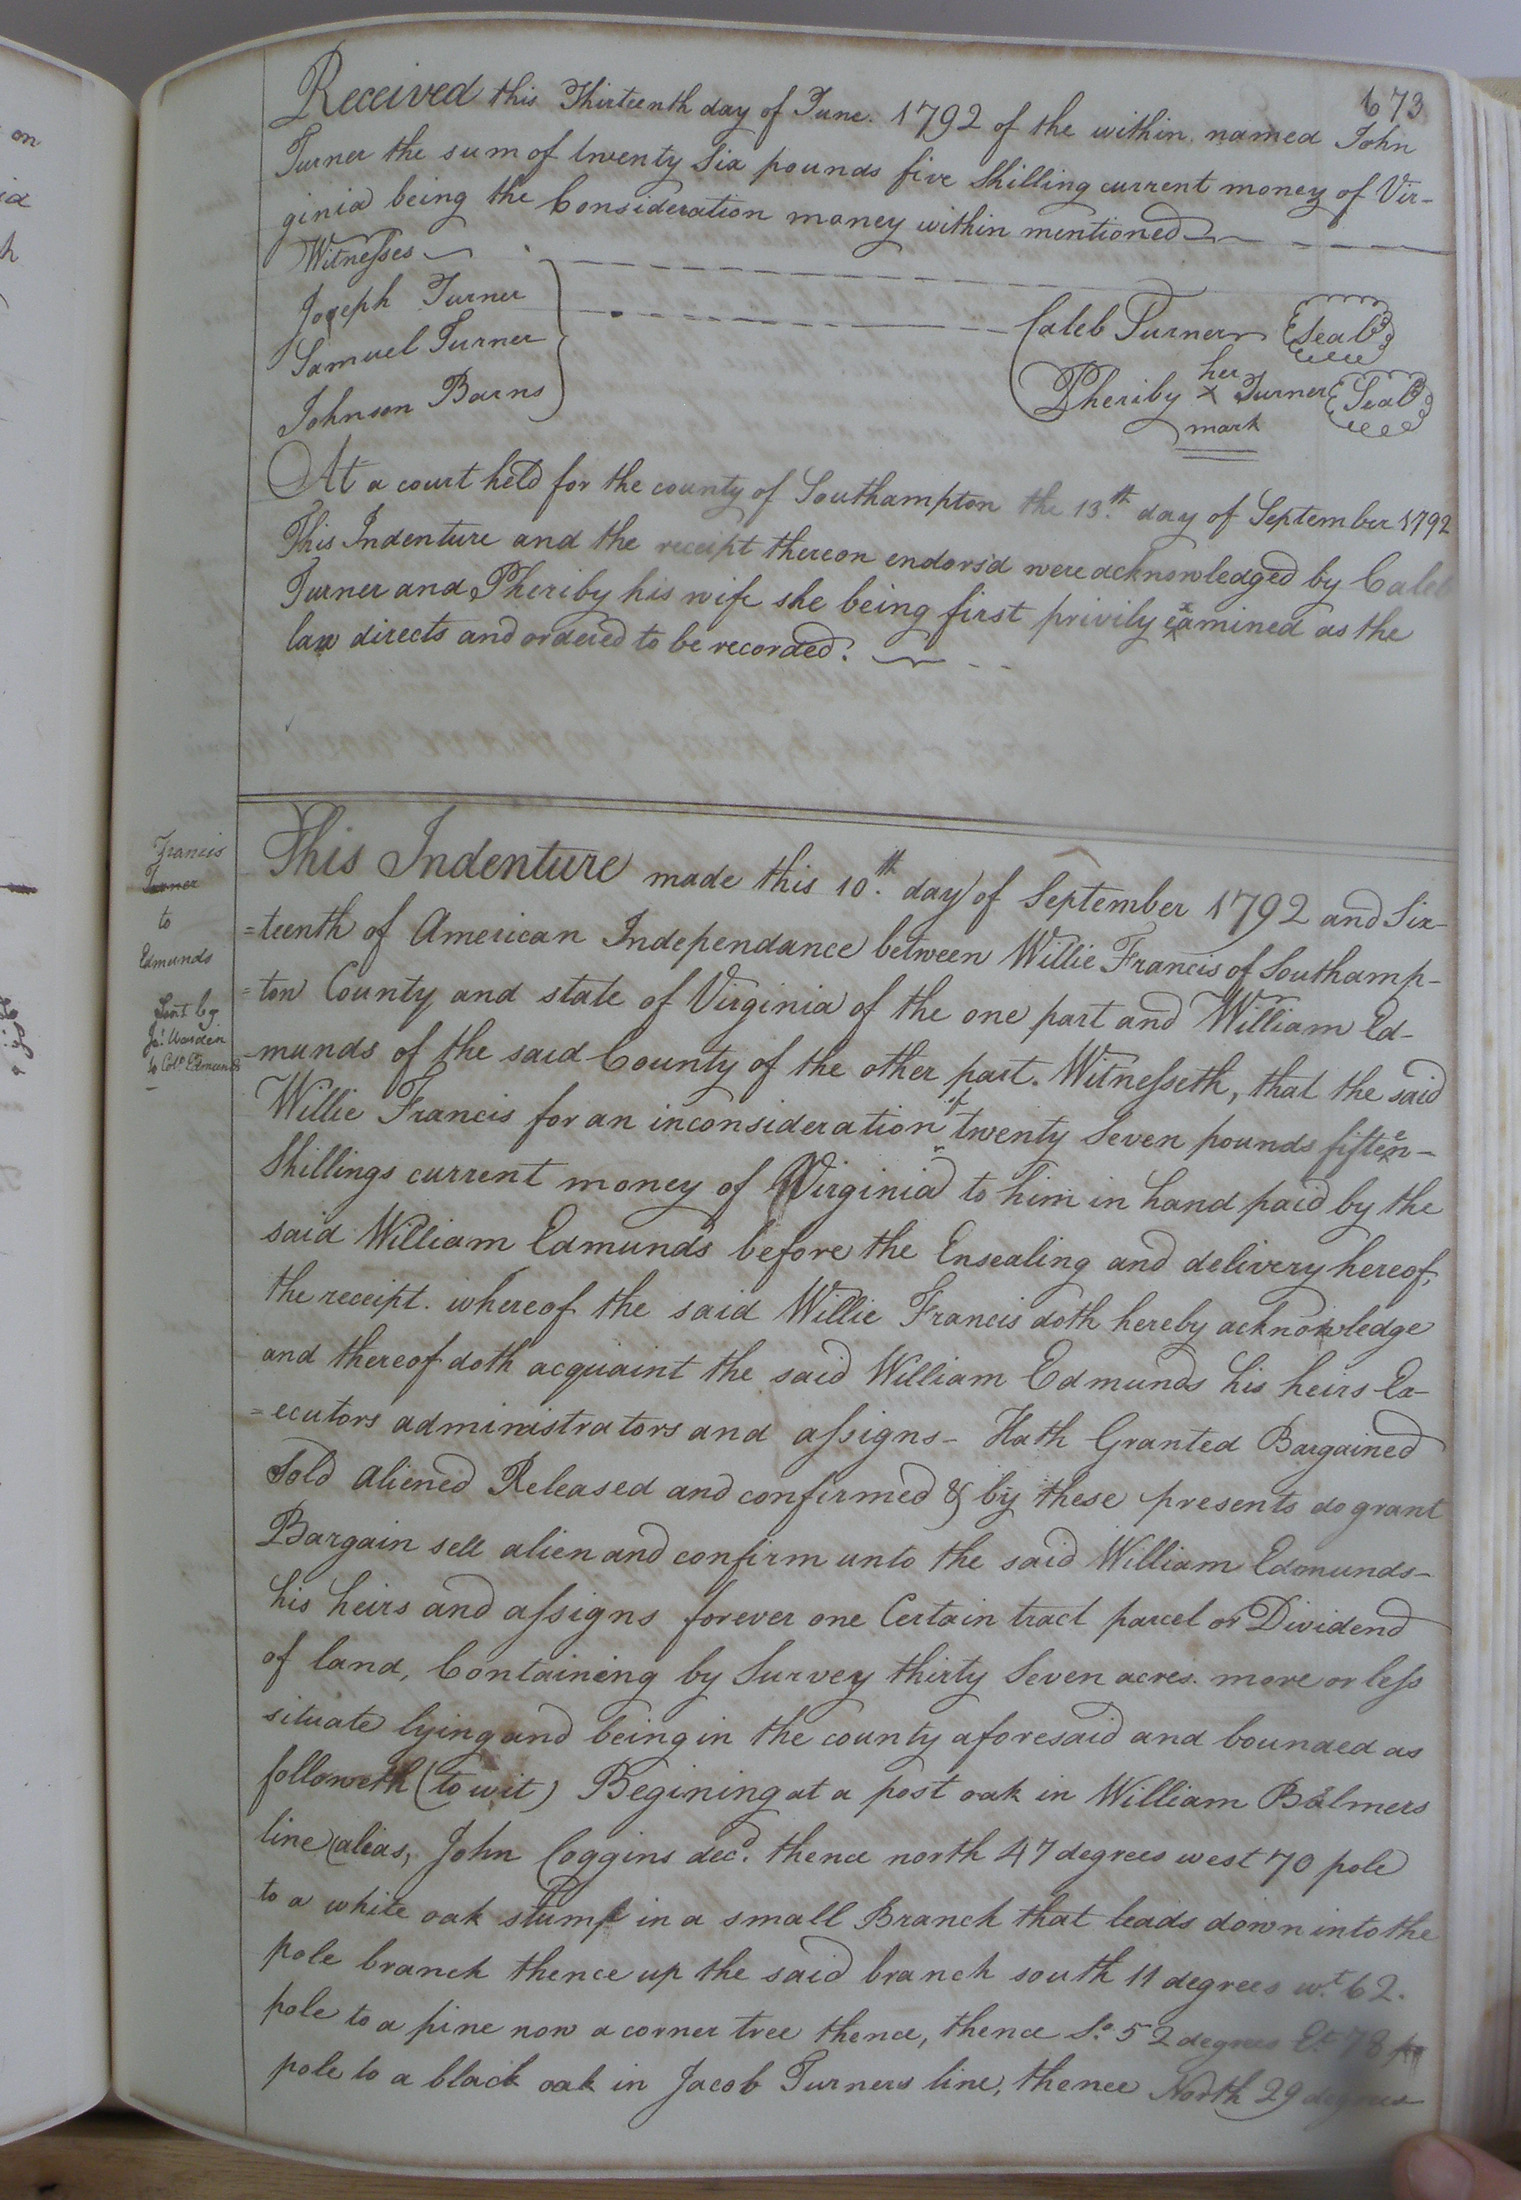 673
Received this Thirteenth day of June. 1792 of the within named John
Turner the sum of twenty Six pounds five Shilling current money of Vir-
ginia being the Consideration money within mentioned
Witnesses
Joseph Turner
Samuel Turner
Johnson Barns
Caleb Turner Seal
her
Pheriby x Turner Seal
mark
At a court held for the county of Southampton the 13.th day of September 1792
This Indenture and the receipt thereon endorsd were acknowledged by Caleb
Turner and Pheriby his wife she being first privily examined as the
law directs and ordered to be recorded.
Francis
Turner
to
Edmunds
Sent by
Js. Warden
to Colo. Edmunds
This Indenture made this 10.th day of September 1792 and Six-
=teenth of American Independance between Willie Francis of Southamp-
=ton County and state of Virginia of the one part and William Ed-
-munds of the said County of the other part. Witnesseth, that the said
Willie Francis for an inconsideration of twenty Seven pounds fifteen-
Shillings current money of Virginia to him in hand paid by the
said William Edmunds before the Ensealing and delivery hereof,
the receipt. whereof the said Willie Francis doth hereby acknowledge
and thereof doth acquaint the said William Edmunds his heirs Ex-
=ecutors administrators and assigns- Hath Granted Bargained
Sold aliened Released and confirmed & by these presents do grant
Bargain sell alien and confirm unto the said William Edmunds-
his heirs and assigns forever one Certain tract parcel or Dividend
of land, Containing by Survey thirty Seven acres. more or less
situate lying and being in the county aforesaid and bounded as
followeth (to wit) Begining at a post oak in William Balmers
line (alias, John Coggins decd. thence north 47 degrees west 70 pole
to a white oak stump in a small Branch that leads down into the
pole branch thence up the said branch south 11 degrees wt. 62.
pole to a pine now a corner tree thence, thence So. 52 degrees Et. 78
pole to a black oak in Jacob Turners line, thence North 29 degrees